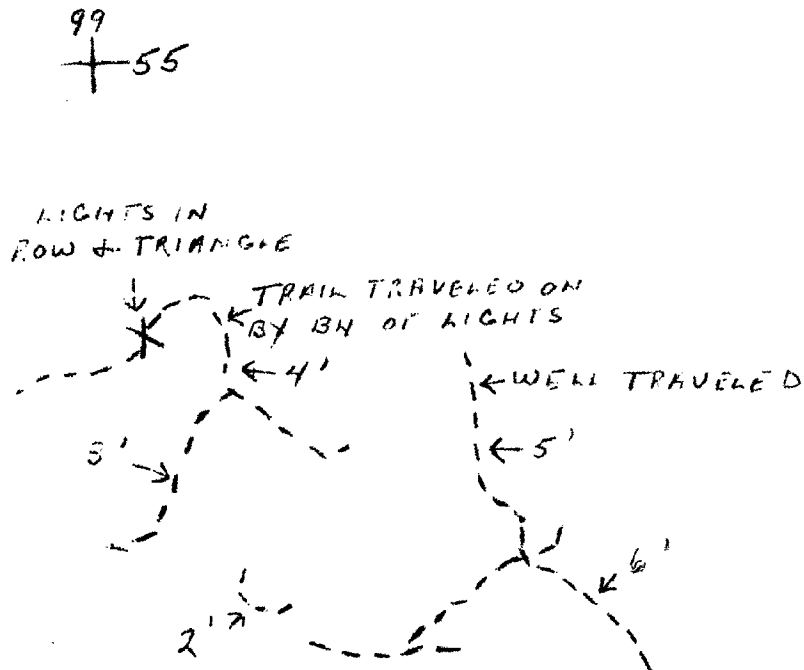 99
55
LIGHTS IN
ROW & TRIANGLE
TRAIL TRAVELED ON
BY BN OF LIGHTS
4'
WELL TRAVELED
3'
5'
6'
2'